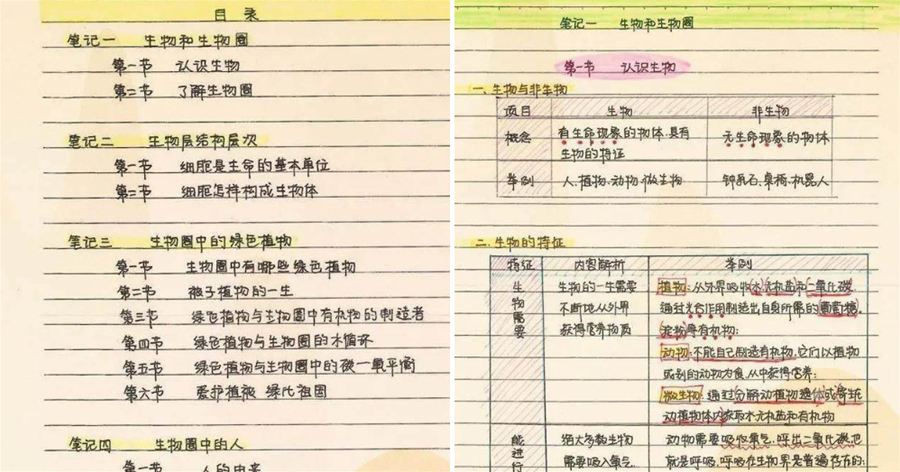 目 录
笔记一 生物和生物圈
第一节 认识生物
第二节 了解生物圈
笔记二 生物层结构层次
第一节 细胞是生命的基本单位
第二节 细胞怎样构成生物体
笔记三 生物圈中的绿色植物
第一节 生物圈中有哪些绿色植物
第二节 被子植物的一生
第三节 绿色植物与生物圈中有机物的制造者
第四节 绿色植物与生物圈的水循环
第五节 绿色植物与生物圈中的碳—氧平衡
第六节 爱护植被 绿化祖国
笔记四 生物圈中的人
第一节 人的由来
笔记一 生物和生物圈
第一节 认识生物
一.生物与非生物
项目 生物 非生物
概念 有生命现象的物体.具有 无生命现象的物体
生物的特征
举例 人.植物.动物.微生物 钟乳石.桌椅.机器人
二.生物的特征
特征 内容解析 举例
生 生物的一生需要 植物:从外界吸收水.无机盐和二氧化碳.
物 不断地从外界 通过光合作用制造出自身所需的葡萄糖.
需 获得营养物质 淀粉等有机物;
要 动物:不能自己制造有机物.它们以植物
或别的动物为食.从中获得营养;
微生物:通过分解动植物遗体或寄生
动植物体内获取水无机盐和有机物
能 绝大多数生物 动物需要吸收氧气.呼出二氧化碳.也
进行 需要吸入氧气. 就是呼吸.呼吸在生物界是普遍存在的;